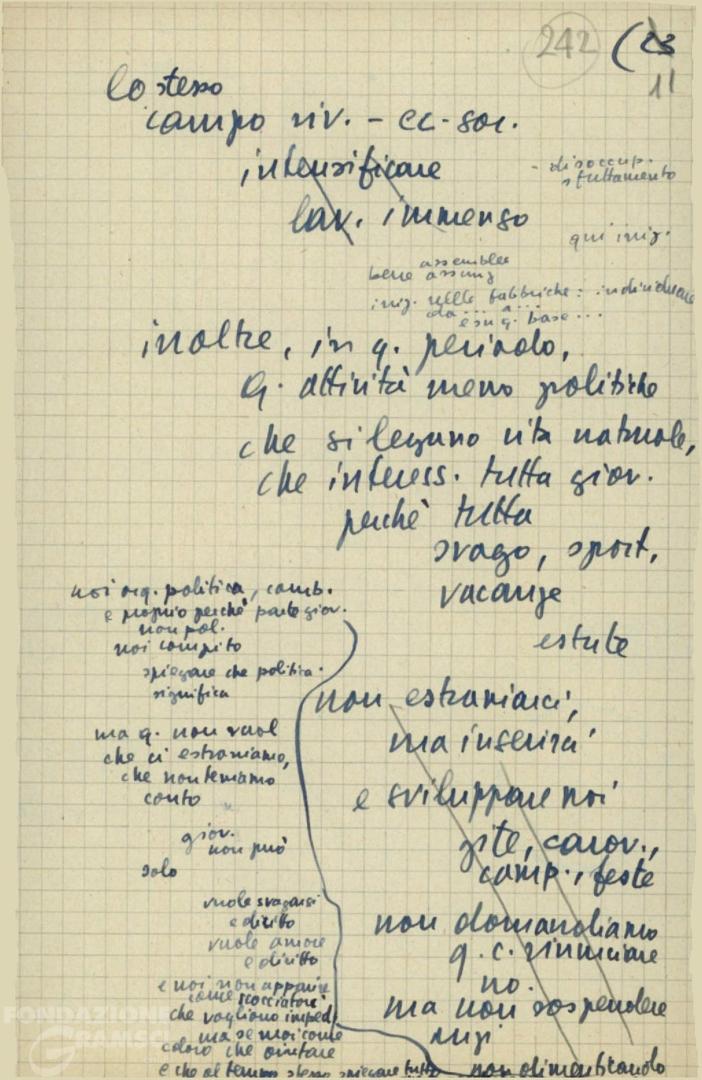 242 (23
11
lo stesso
campo riv. - ec-soc.
intensificare
- disoccup.
sfruttamento
lav. immenso
qui iniz.
assemblee
bene assung
iniz. nelle fabbriche: individuare
da ... a ...
e su q. base ...
inoltre, in q. periodo,
q. attività meno politiche
che si legano vita naturale,
che interess. tutta giov.
perchè tutta
svago, sport,
vacanze
estate
noi org. politica, comb.
e proprio perchè parte giov.
non pol.
noi compito
spiegare che politica.
significa
ma q. non vuol
che ci estraniamo,
che non teniamo
conto
giov.
non può
solo
vuole svagarsi
e diritto
vuole amore
e diritto
e noi non apparire
come scocciatori
che vogliono imped.
ma se mai come
coloro che aiutare
e che al tempo stesso spiegare tutto
non estraniarci,
ma inserirci
e sviluppare noi
gite, carov.,
camp., feste
non domandiamo
q. c. rinunciare
no.
ma non sospendere
anzi
non dimenticando
FONDAZIONE
GRAMSCI